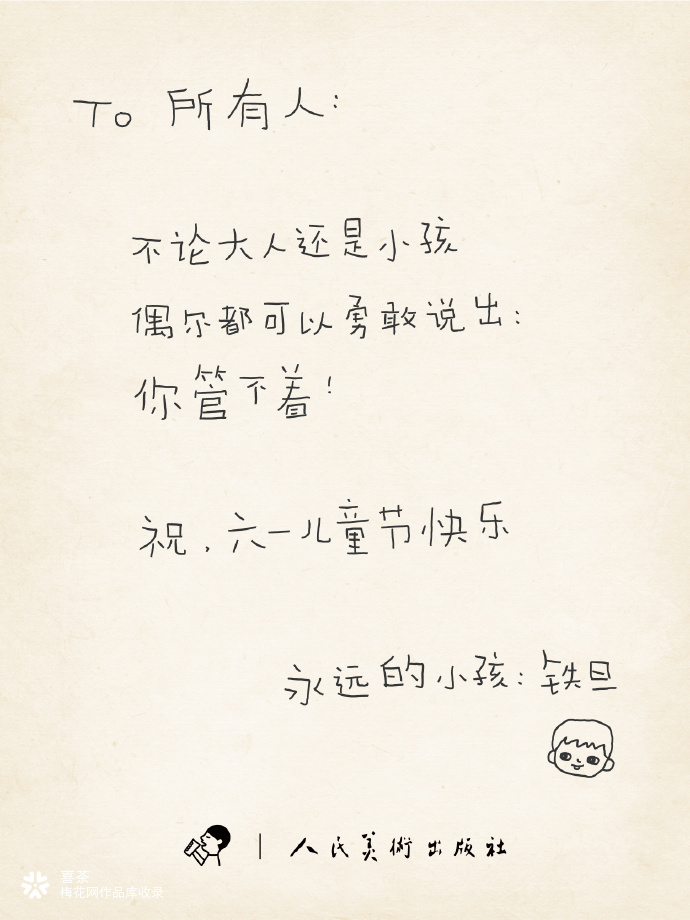 To 所有人:
不论大人还是小孩
偶尔都可以勇敢说出:
你管不着!
祝,六一儿童节快乐
永远的小孩:铁旦
人民美術出版社
喜茶
梅花网作品库收录